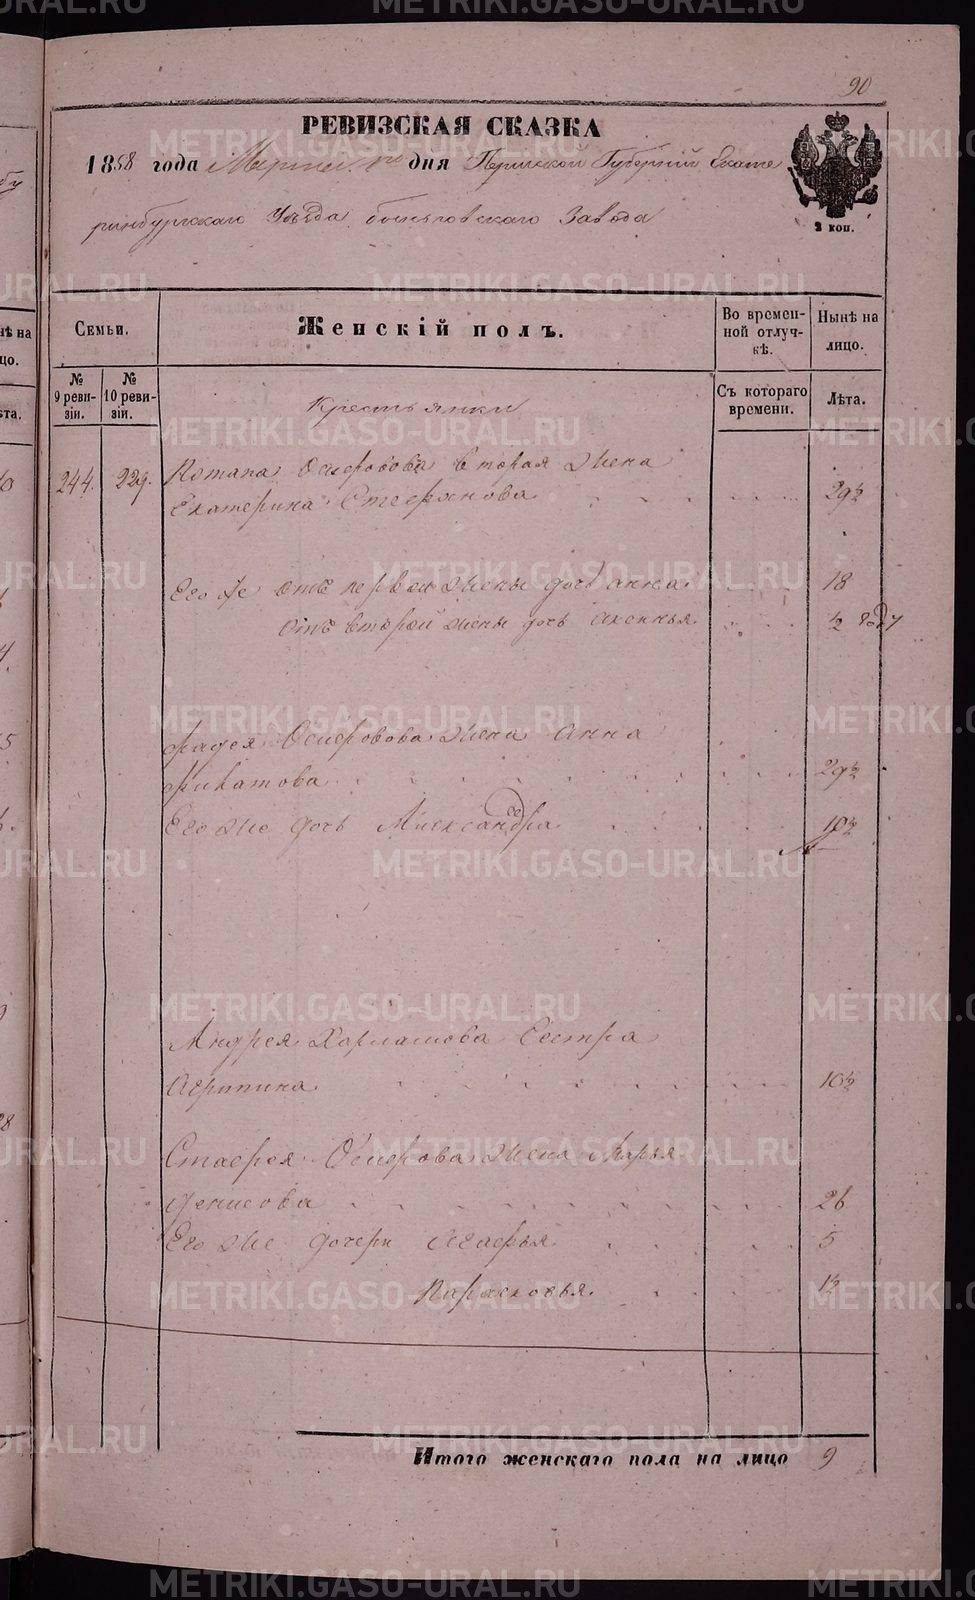 90
РЕВИЗСКАЯ СКАЗКА
1858 года Марта дня Пермской Губерній Екате
ринбургскаго Уѣзда Завода
2 коп.
Семьи.
Женскій полъ.
Во времен-
ной отлуч-
кѣ.
Нынѣ на
лицо.
№
9 реви-
зіи.
№
10 реви-
зіи.
Съ котораго
времени.
Лѣта.
Крестьянки
244. 229. Потапа вторая жена
Екатерина Стефанова 29½
Его же отъ первой жены дочь Анна 18
Отъ второй жены дочь Аксинья ½ году
Фадея жена Анна
Филатова 29½
Его же дочь Александра 10½
Андрея Харламова Сестра
Агрипина 10½
жена Марья
Денисова 26
Его же дочери 5
Парасковья 1½
Итого женскаго пола на лицо 9
METRIKI.GASO-URAL.RU